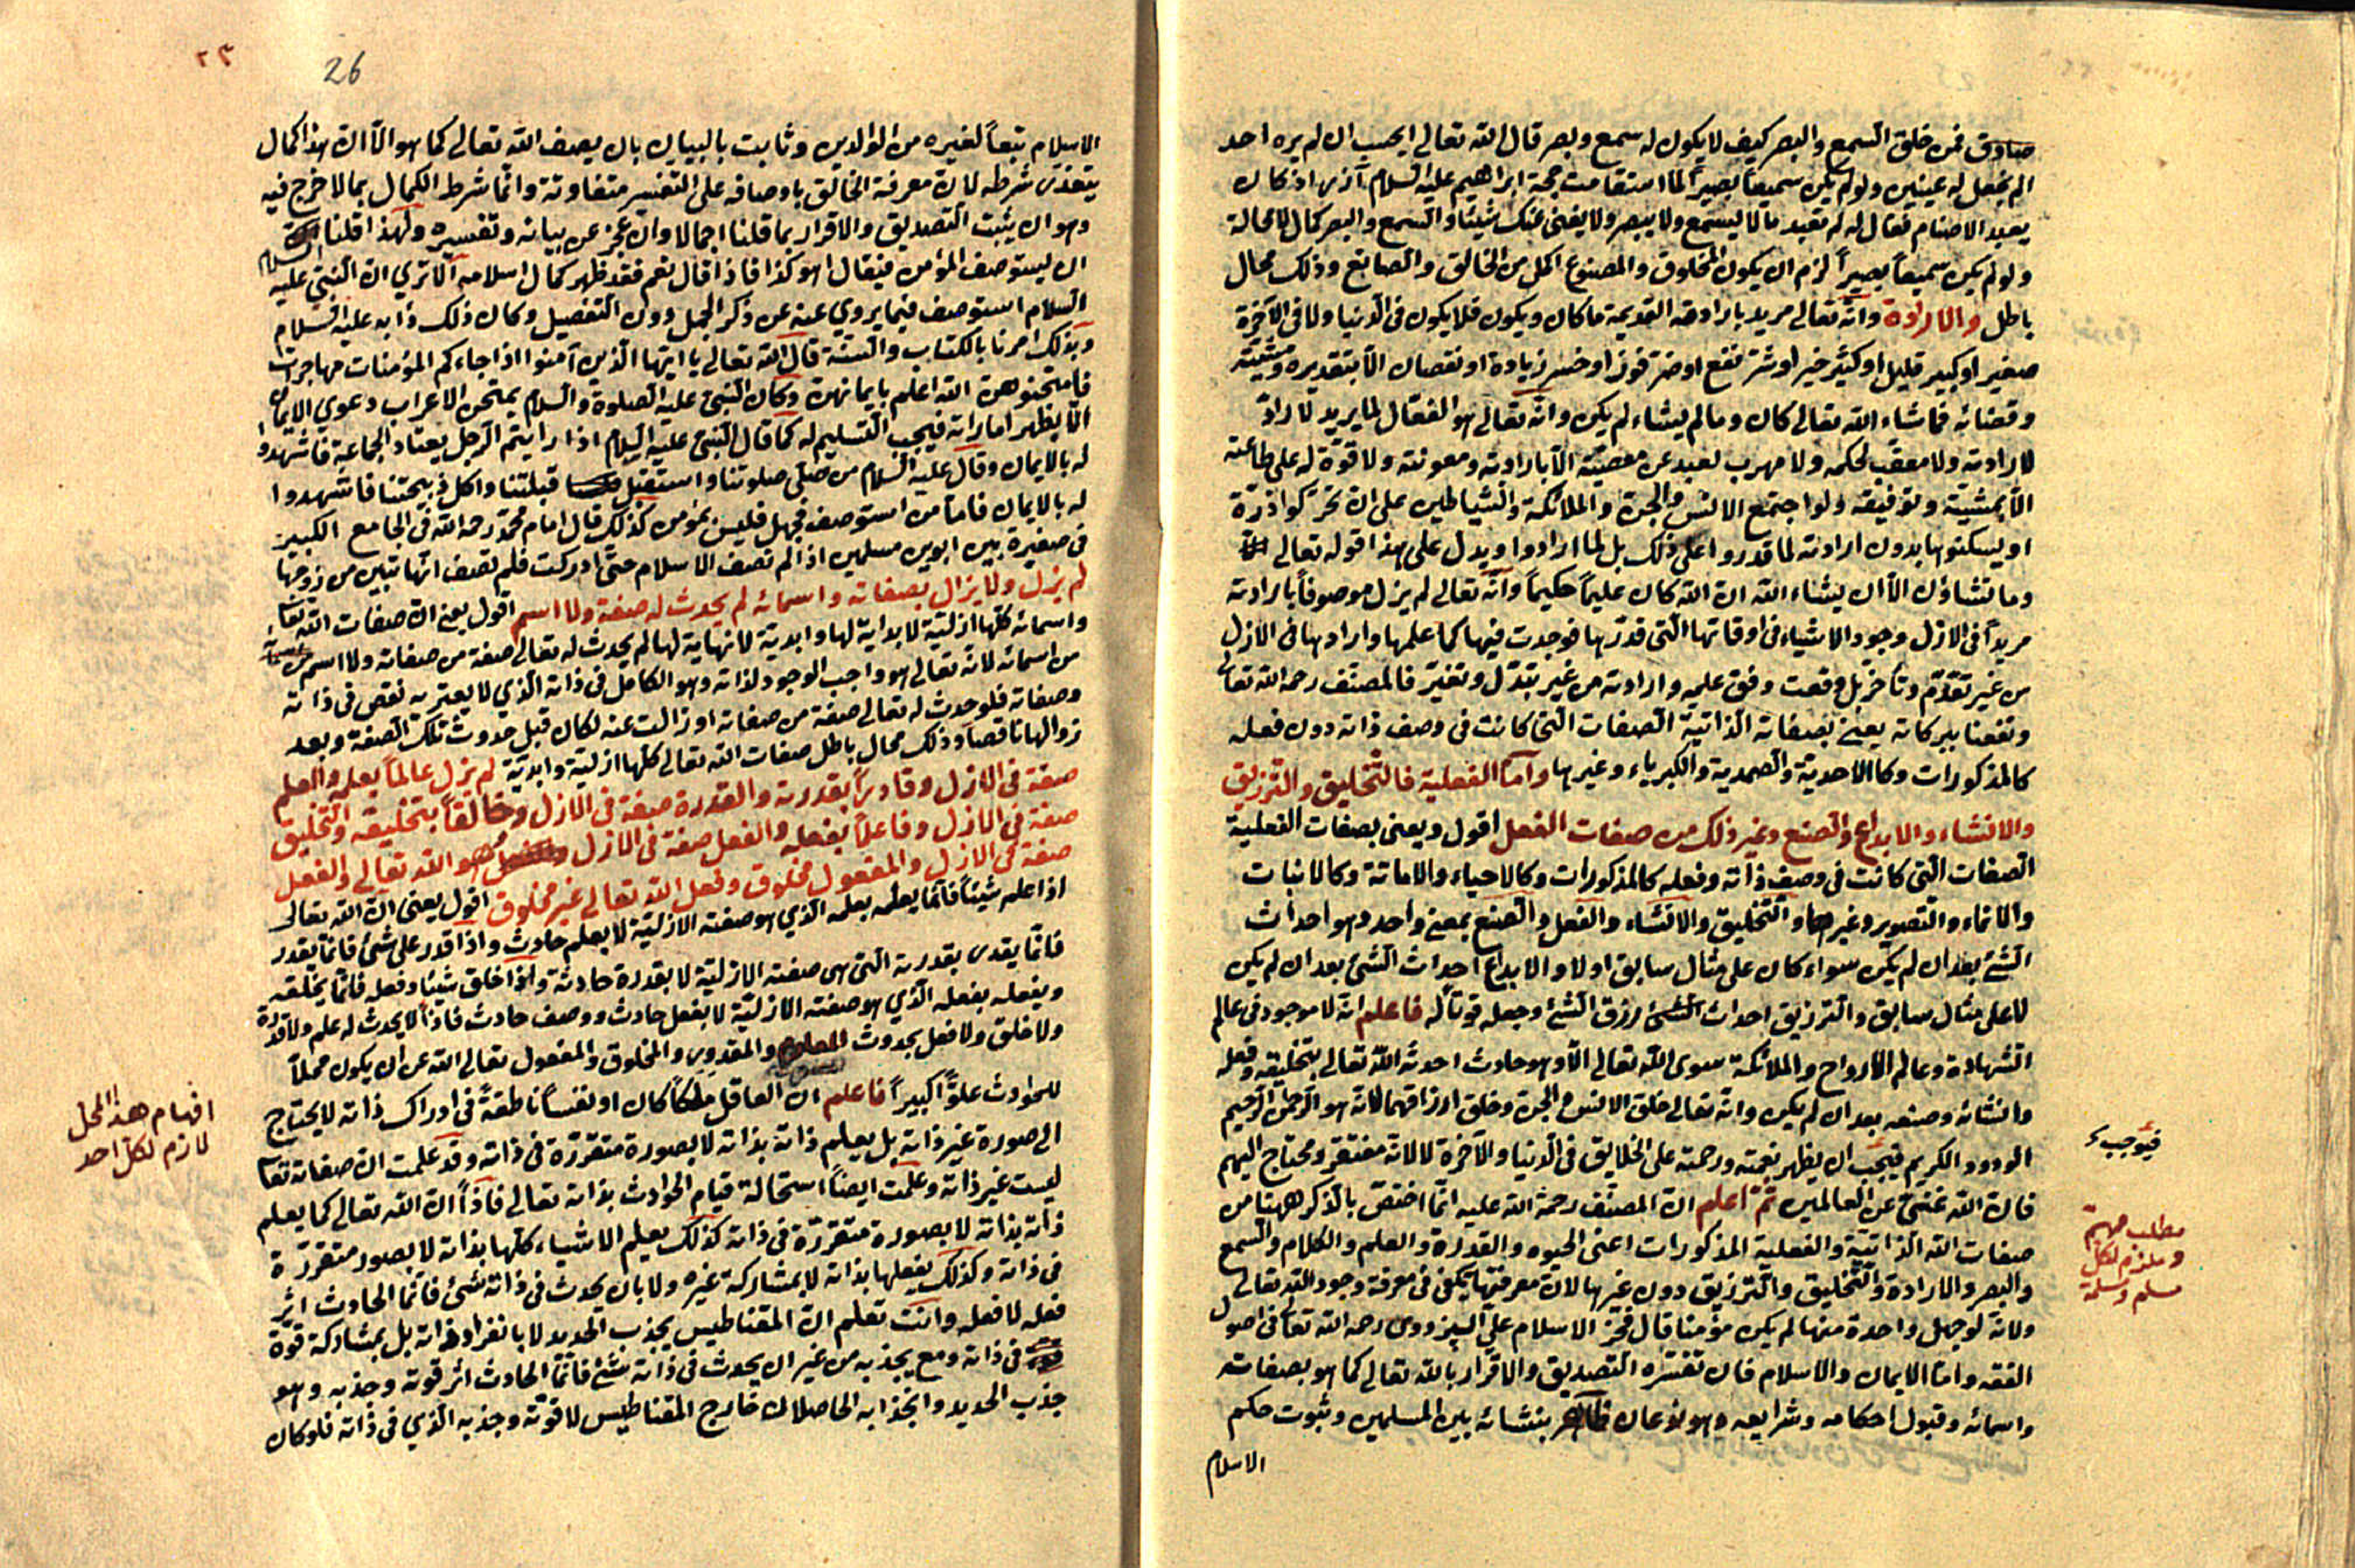 صادق فمن خلق السمع والبصر كيف لا يكون له سمع وبصر قال الله تعالى ايحسب ان لم يره احد
الم نجعل له عينين ولو لم يكن سميعاً بصيراً لما استقامت حجة ابراهيم عليه السلام آزر اذ كان
يعبد الاصنام فقال له لم تعبد ما لا يسمع ولا يبصر ولا يغنى عنك شيئا والسمع والبصر كمال لا محالة
ولو لم يكن سميعاً بصيراً لزم ان يكون المخلوق والمصنوع اكمل من الخالق والصانع وذلك محال
باطل والارادة وانه تعالى مريد بارادته القديمة ما كان ويكون فلا يكون فى الدنيا ولا فى الآخرة
صغير او كبير قليل او كثير خير او شر نفع او ضر فوز او خسر زيادة او نقصان الا بتقديره ومشيته
وقضائه فما شاء الله تعالى كان وما لم يشاء لم يكن وانه تعالى هو الفعال لما يريد لا راد
لارادته ولا معقب لحكمه ولا مهرب لعبد عن معصيته الا بارادته ومعونته ولا قوة له على طاعته
الا بمشيته وتوفيقه ولو اجتمع الانس والجن والملائكة والشياطين على ان تحركوا ذرة
او يسكنوها بدون ارادته لما قدروا على ذلك بل لما ارادوا ويدل على هذا قوله تعالى
وما تشاؤن الا ان يشاء الله ان الله كان عليماً حكيماً وانه تعالى لم يزل موصوفاً بارادته
مريداً فى الازل وجود الاشياء فى اوقاتها التى قدرها فوجدت فيها كما علمها وارادها فى الازل
من غير تقدم وتأخر بل وقعت وفق علمه وارادته من غير تبدل وتغير فالمصنف رحمه الله تعالى
ونفعنا ببركاته يعنى بصفاته الذاتية الصفات التى كانت فى وصف ذاته دون فعله
كالمذكورات وكالاحدية والصمدية والكبرياء وغيرها واما الفعلية فالتخليق والترزيق
والانشاء والابداع والصنع وغير ذلك من صفات الفعل اقول ويعنى بصفات الفعلية
الصفات التى كانت فى وصف ذاته وفعله كالمذكورات وكالاحياء والاماتة وكالانبات
والانماء والتصوير وغيرها والتخليق والانشاء والفعل والصنع بمعنى واحد وهو احداث
الشئ بعد ان لم يكن سواء كان على مثال سابق اولا والابداع احداث الشئ بعد ان لم يكن
لا على مثال سابق والترزيق احداث رزق الشئ وجعله قوتاً له فاعلم انه لا موجود فى عالم
الشهادة وعالم الارواح والملائكة سوى الله تعالى الا وهو حادث احدثه الله تعالى بتخليقه وفعله
وانشائه وصنعه بعد ان لم يكن وانه تعالى خلق الانس والجن وخلق ارزاقهما لانه هو الرحمن الرحيم
الودود الكريم فيجب ان يظهر نعمته ورحمته على الخلايق فى الدنيا والآخرة لا لانه مفتقر ومحتاج اليهم
فان الله غنى عن العالمين ثم اعلم ان المصنف رحمة الله عليه انما اختص بالذكر ههنا من
صفات الله الذاتية والفعلية المذكورات اعنى الحيوه والقدرة والعلم والكلام والسمع
والبصر والارادة والتخليق والترزيق دون غيرها لان معرفتها يكفى فى معرفة وجود الله تعالى
ولانه لو جهل واحدة منها لم يكن مؤمنا قال فخر الاسلام على البزدوى رحمه الله تعالى فى اصول
الفقه واما الايمان والاسلام فان تفسره التصديق والاقرار بالله تعالى كما هو بصفاته
واسمائه وقبول احكامه وشرايعه وهو نوعان ظاهر بنشائه بين المسلمين وثبوت حكم
الاسلام
فيوجبء
مطلب مهم
وملزم لكل
مسلم ومسلمة
٢٣
26
الاسلام تبعاً لغيره من الوالدين وثابت بالبيان بان يصف الله تعالى كما هو الا ان هذا كمال
يتعذر شرطه لان معرفة الخالق باوصافه على التفسير متفاوتة وانما شرط الكمال بما لا حرج فيه
وهو ان يثبت التصديق والاقرار بما قلنا اجمالا وان عجز عن بيانه وتفسيره ولهذا قلنا
ان يستوصف المؤمن فيقال اهو كذا فاذا قال نعم فقد ظهر كمال اسلامه الا ترى ان النبى عليه السلام
السلام استوصف فيما يروي عنه عن ذكر الجمل دون التفصيل وكان ذلك دأبه عليه السلام
وبذلك امرنا بالكتاب والسنة قال الله تعالى يا ايها الذين آمنوا اذا جاءكم المؤمنات مهاجرات
فامتحنوهن الله اعلم بايمانهن وكان النبى عليه الصلوة والسلام يمتحن الاعراب دعوي الايمان
الا يظهر اماراته فيجب التسليم له كما قال النبى عليه السلام اذا رايتم الرجل يعتاد الجماعة فاشهدوا
له بالايمان وقال عليه السلام من صلى صلوتنا واستقبل قبلتنا واكل ذبيحتنا فاشهدوا
له بالايمان فاما من استوصف فجهل فليس بمؤمن كذلك قال امام محمد رحمه الله فى الجامع الكبير
فى صغيرة بين ابوين مسلمين اذا لم تصف الاسلام حتى ادركت فلم تصف انها تبين من زوجها
لم يزل ولا يزال بصفاته واسمائه لم يحدث له صفة ولا اسم اقول يعنى ان صفات الله تعا
واسمائه كلها ازلية لا بداية لها وابدية لا نهاية لها لم يحدث له تعالى صفة من صفاته ولا اسم من
من اسمائه لانه تعالى هو واجب الوجود لذاته وهو الكامل فى ذاته الذي لا يعتريه نقص فى ذاته
وصفاته فلو حدث له تعالى صفة من صفاته او زالت عنه لكان قبل حدوث تلك الصفة وبعد
زوالها ناقصا وذلك محال باطل صفات الله تعالى كلها ازلية وابدية لم يزل عالماً بعلمه والعلم
صفة فى الازل وقادراً بقدرته والقدرة صفة فى الازل وخالقاً بتخليقه والتخليق
صفة فى الازل وفاعلاً بفعله والفعل صفة فى الازل هو الله تعالى والفعل
صفة فى الازل والمفعول مخلوق وفعل الله تعالى غير مخلوق اقول يعنى ان الله تعالى
اذا علم شيئاً فانما يعلمه بعلمه الذي هو صفته الازلية لا بعلم حادث واذا قدر على شئ فانما يقدر
فانما يقدر بقدرته التى هى صفته الازلية لا بقدرة حادثة واذا خلق شيئا وفعله فانما يخلقه
ويفعله بفعله الذي هو صفته الازلية لا بفعل حادث ووصف حادث فاذاً لا يحدث له علم ولا قدرة
ولا خلق ولا فعل بحدوث المعلوم والمقدور والمخلوق والمفعول تعالى الله عن ان يكون محلاً
للحوادث علواً كبيراً فاعلم ان العاقل ملكاً كان او نفساً ناطقةً فى ادراك ذاته لا يحتاج
الى صورة غير ذاته بل يعلم ذاته بذاته لا بصورة متقررة فى ذاته وقد علمت ان صفاته تعا
ليست غير ذاته وعلمت ايضاً استحالة قيام الحوادث بذاته تعالى فاذاً ان الله تعالى كما يعلم
ذاته بذاته لا بصورة متقررة فى ذاته كذلك يعلم الاشياء كلها بذاته لا بصور متقررة
فى ذاته وكذلك يفعلها بذاته لا بمشاركة غيره ولا بان يحدث فى ذاته شئ فانما الحادث اثر
فعله لا فعله وانت تعلم ان المقناطيس يجذب الحديد لا بانفراد ذاته بل بمشاركة قوة
فى ذاته ومع يجذبه من غير ان يحدث فى ذاته شئ فانما الحادث اثر قوته وجذبه وهو
جذب الحديد وانجذابه الحاصلان خارج المقناطيس لا قوته وجذبه الذي فى ذاته فلو كان
افهام هذا المحل
لازم لكل احد